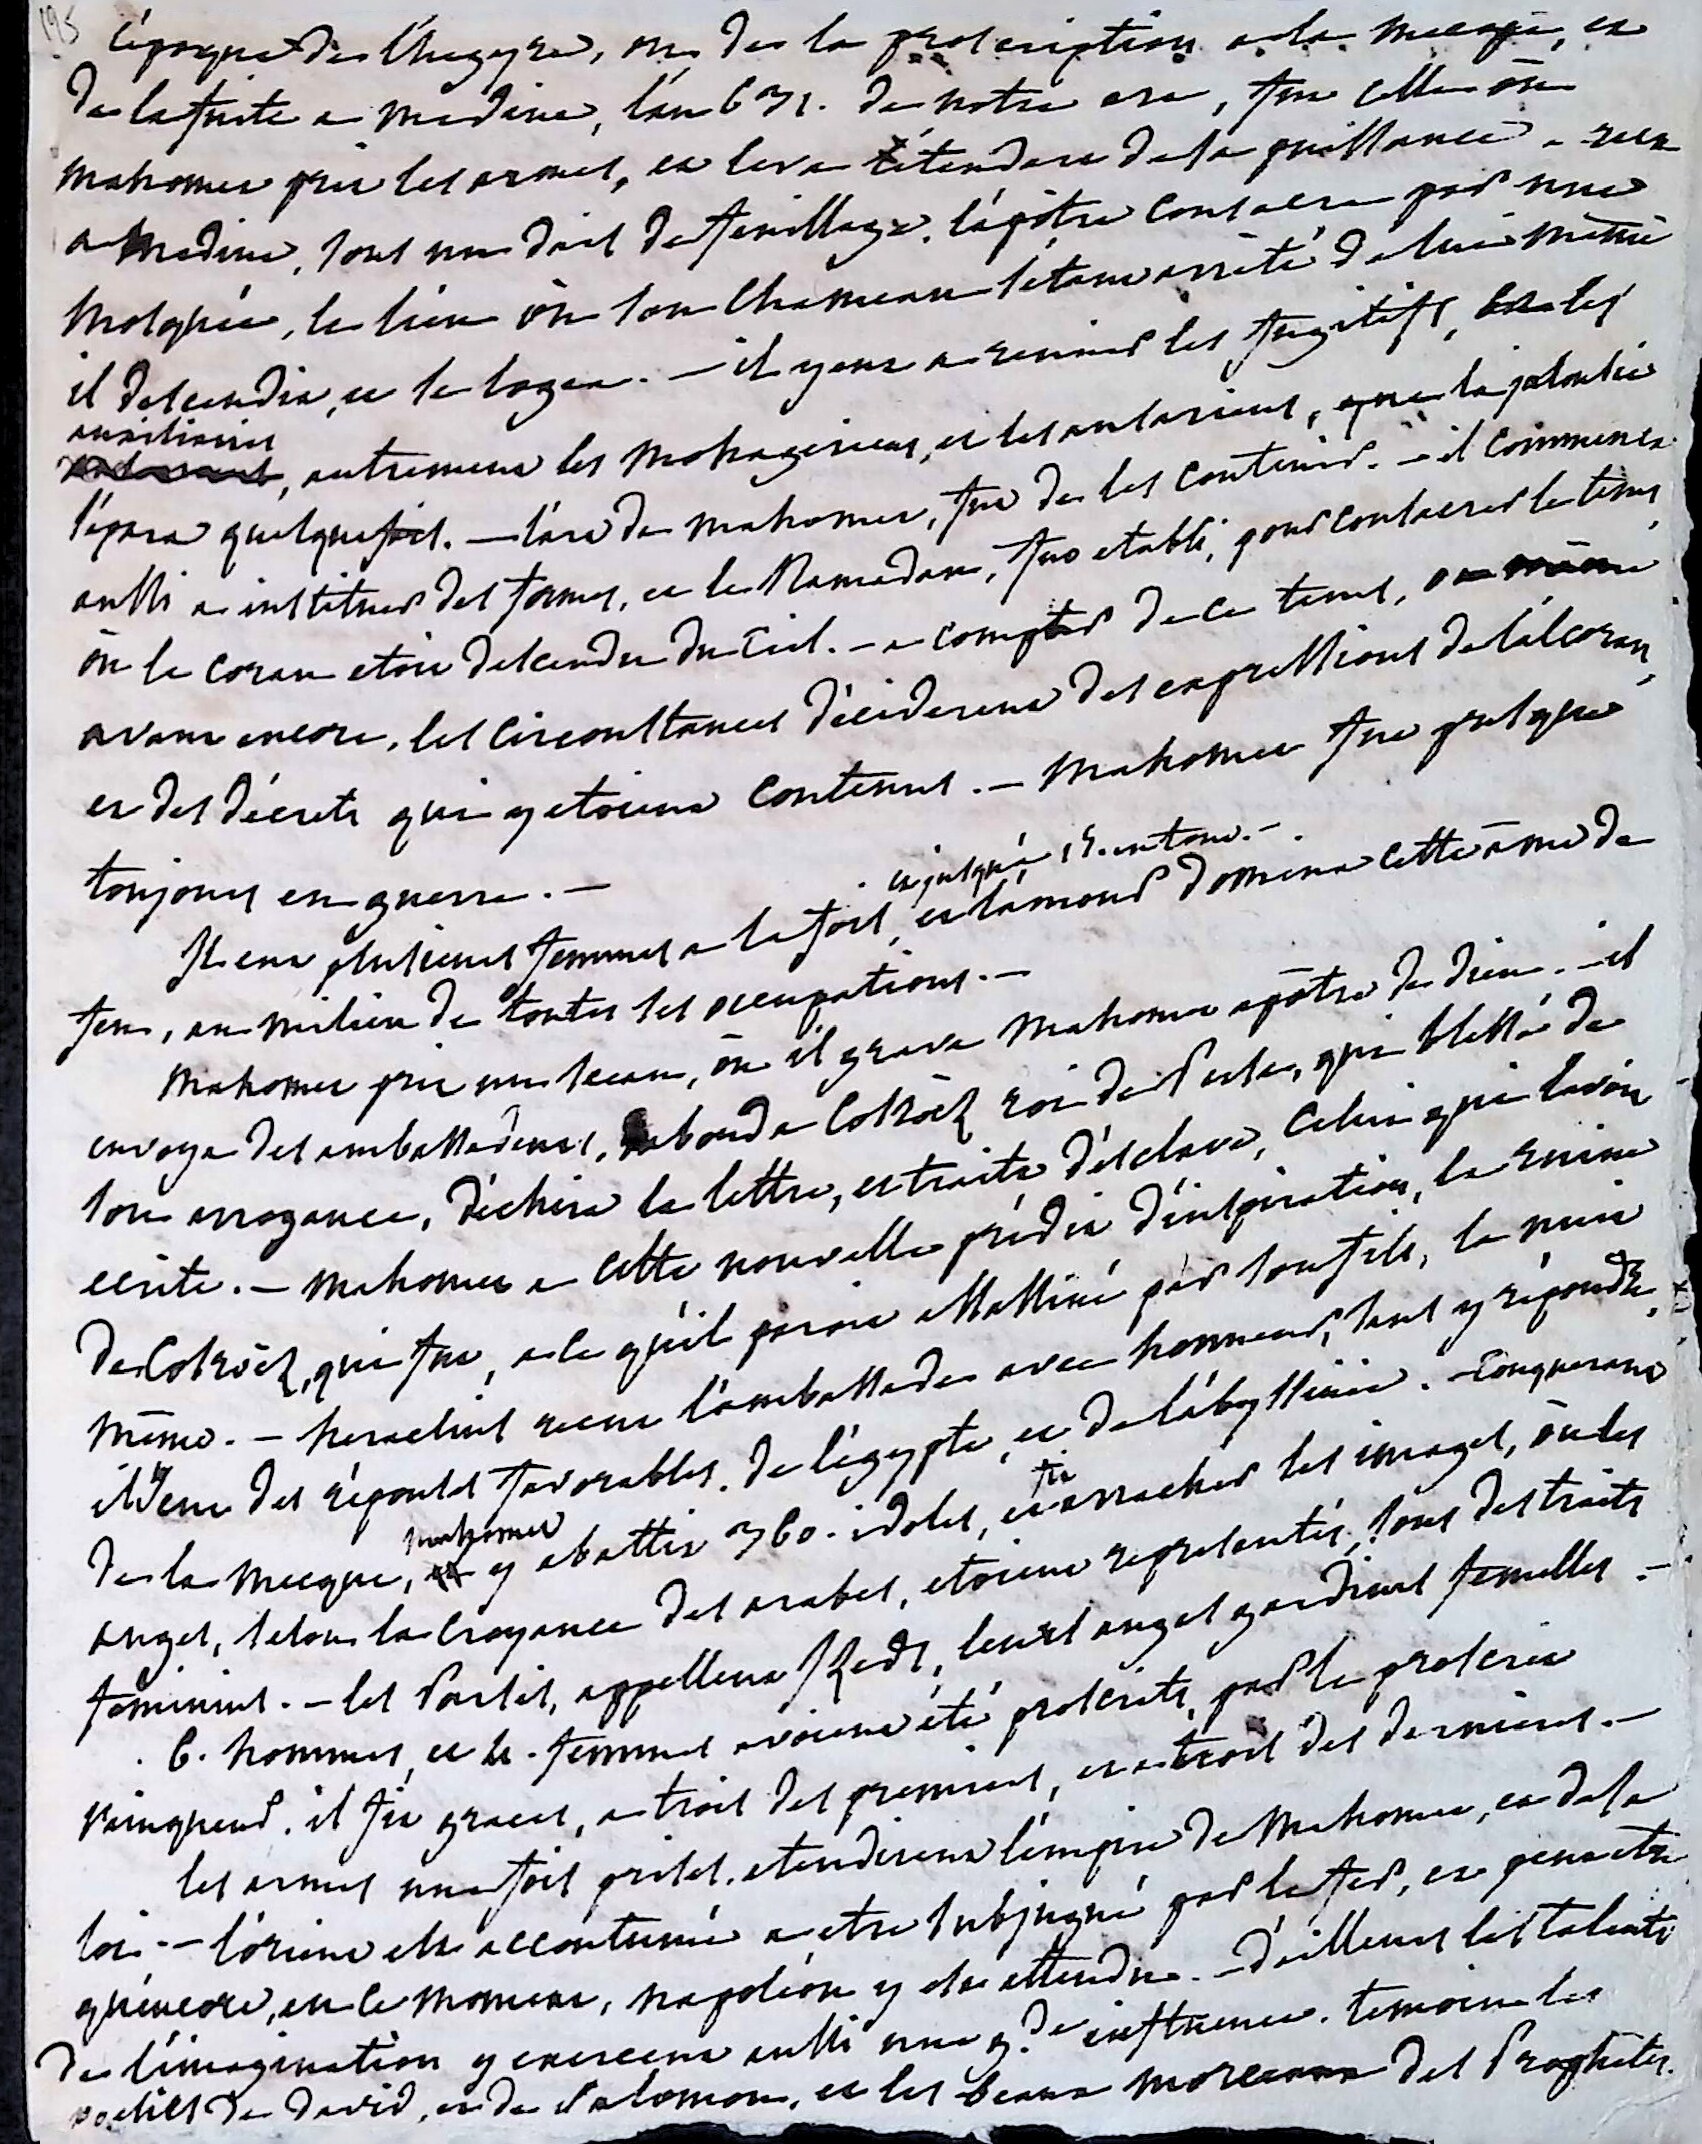 195
l'époque de l'hegyre, ou de la proscription a la mecque, et
de la fuite a medine, l'an 631. de notre ere, fut celle où
mahomet prit les armes, et leva l'étendart de sa puissance - recu
a medine, sous un dais de feuillage. l'apôtre consacra par une
mosquée, le lieu où son chameau s'étant arrêté de lui même
il descendit, et se logea. - il y eut a reunir les fugitifs, et les
auxiliaires
, autrement les mohageriens, et les ansariens, que la jalousie
sépara quelquefois. - l'art de mahomet, fut de les contenir. - il commenca
aussi a instituer des formes, et le Ramadan, fut etabli, pour consacrer le tems
où le coran etoit descendu du Ciel. - a compter de ce tems, ou même
avant encore, les circonstances déciderent des expressions de l'alcoran,
et des décrets qui y etoient contenus. - Mahomet fut presque
toujours en guerre. -
et jusqu'à 15. entout. -
Il eut plusieurs femmes a la fois, et l'amour domina cette âme de
feu, au milieu de toutes ses occupations. -
Mahomet prit un sceau, où il grava Mahomet apôtre de dieu. - il
envoya des ambassadeurs, d'abord a Cosroëz roi de Perse, qui blessé de
son arrogance, déchira la lettre, et traita d'esclave, celui qui l'avoit
ecrite. - Mahomet a cette nouvelle prédit d'inspiration, la ruine
de Cosroëz, qui fut, a ce qu'il paroit assassiné par son fils, la nuit
même. - heraclius recut l'ambassade avec honneur, sans y répondre,
il y eut des réponses favorables. de l'égypte, et de l'abyssinie. - conquerant
de la mecque, mahomet y abattit 360. idoles, et fit arracher les images, où les
anges, selon la croyance des arabes, etoient representés, sous des traits
feminins. - les Parsis, appellent Izeds, leurs anges gardiens femelles. -
6. hommes, et 6. femmes avoient été proscrits, par le proscrit
vainqueur. il fit graces, a trois des premiers, et a trois des dernieres. -
les armes une fois prises, etendirent l'empire de Mahomet, et de sa
loi. - l'orient est accoutumé a etre subjugué par le fer, et peut etre
qu'encore, en ce moment, napoléon y est attendu. - D'ailleurs les talents
de l'imagination y exercent aussi une gde influence. temoin les
poesies de David, et de Salomon, et les beaux morceaux des Prophetes.